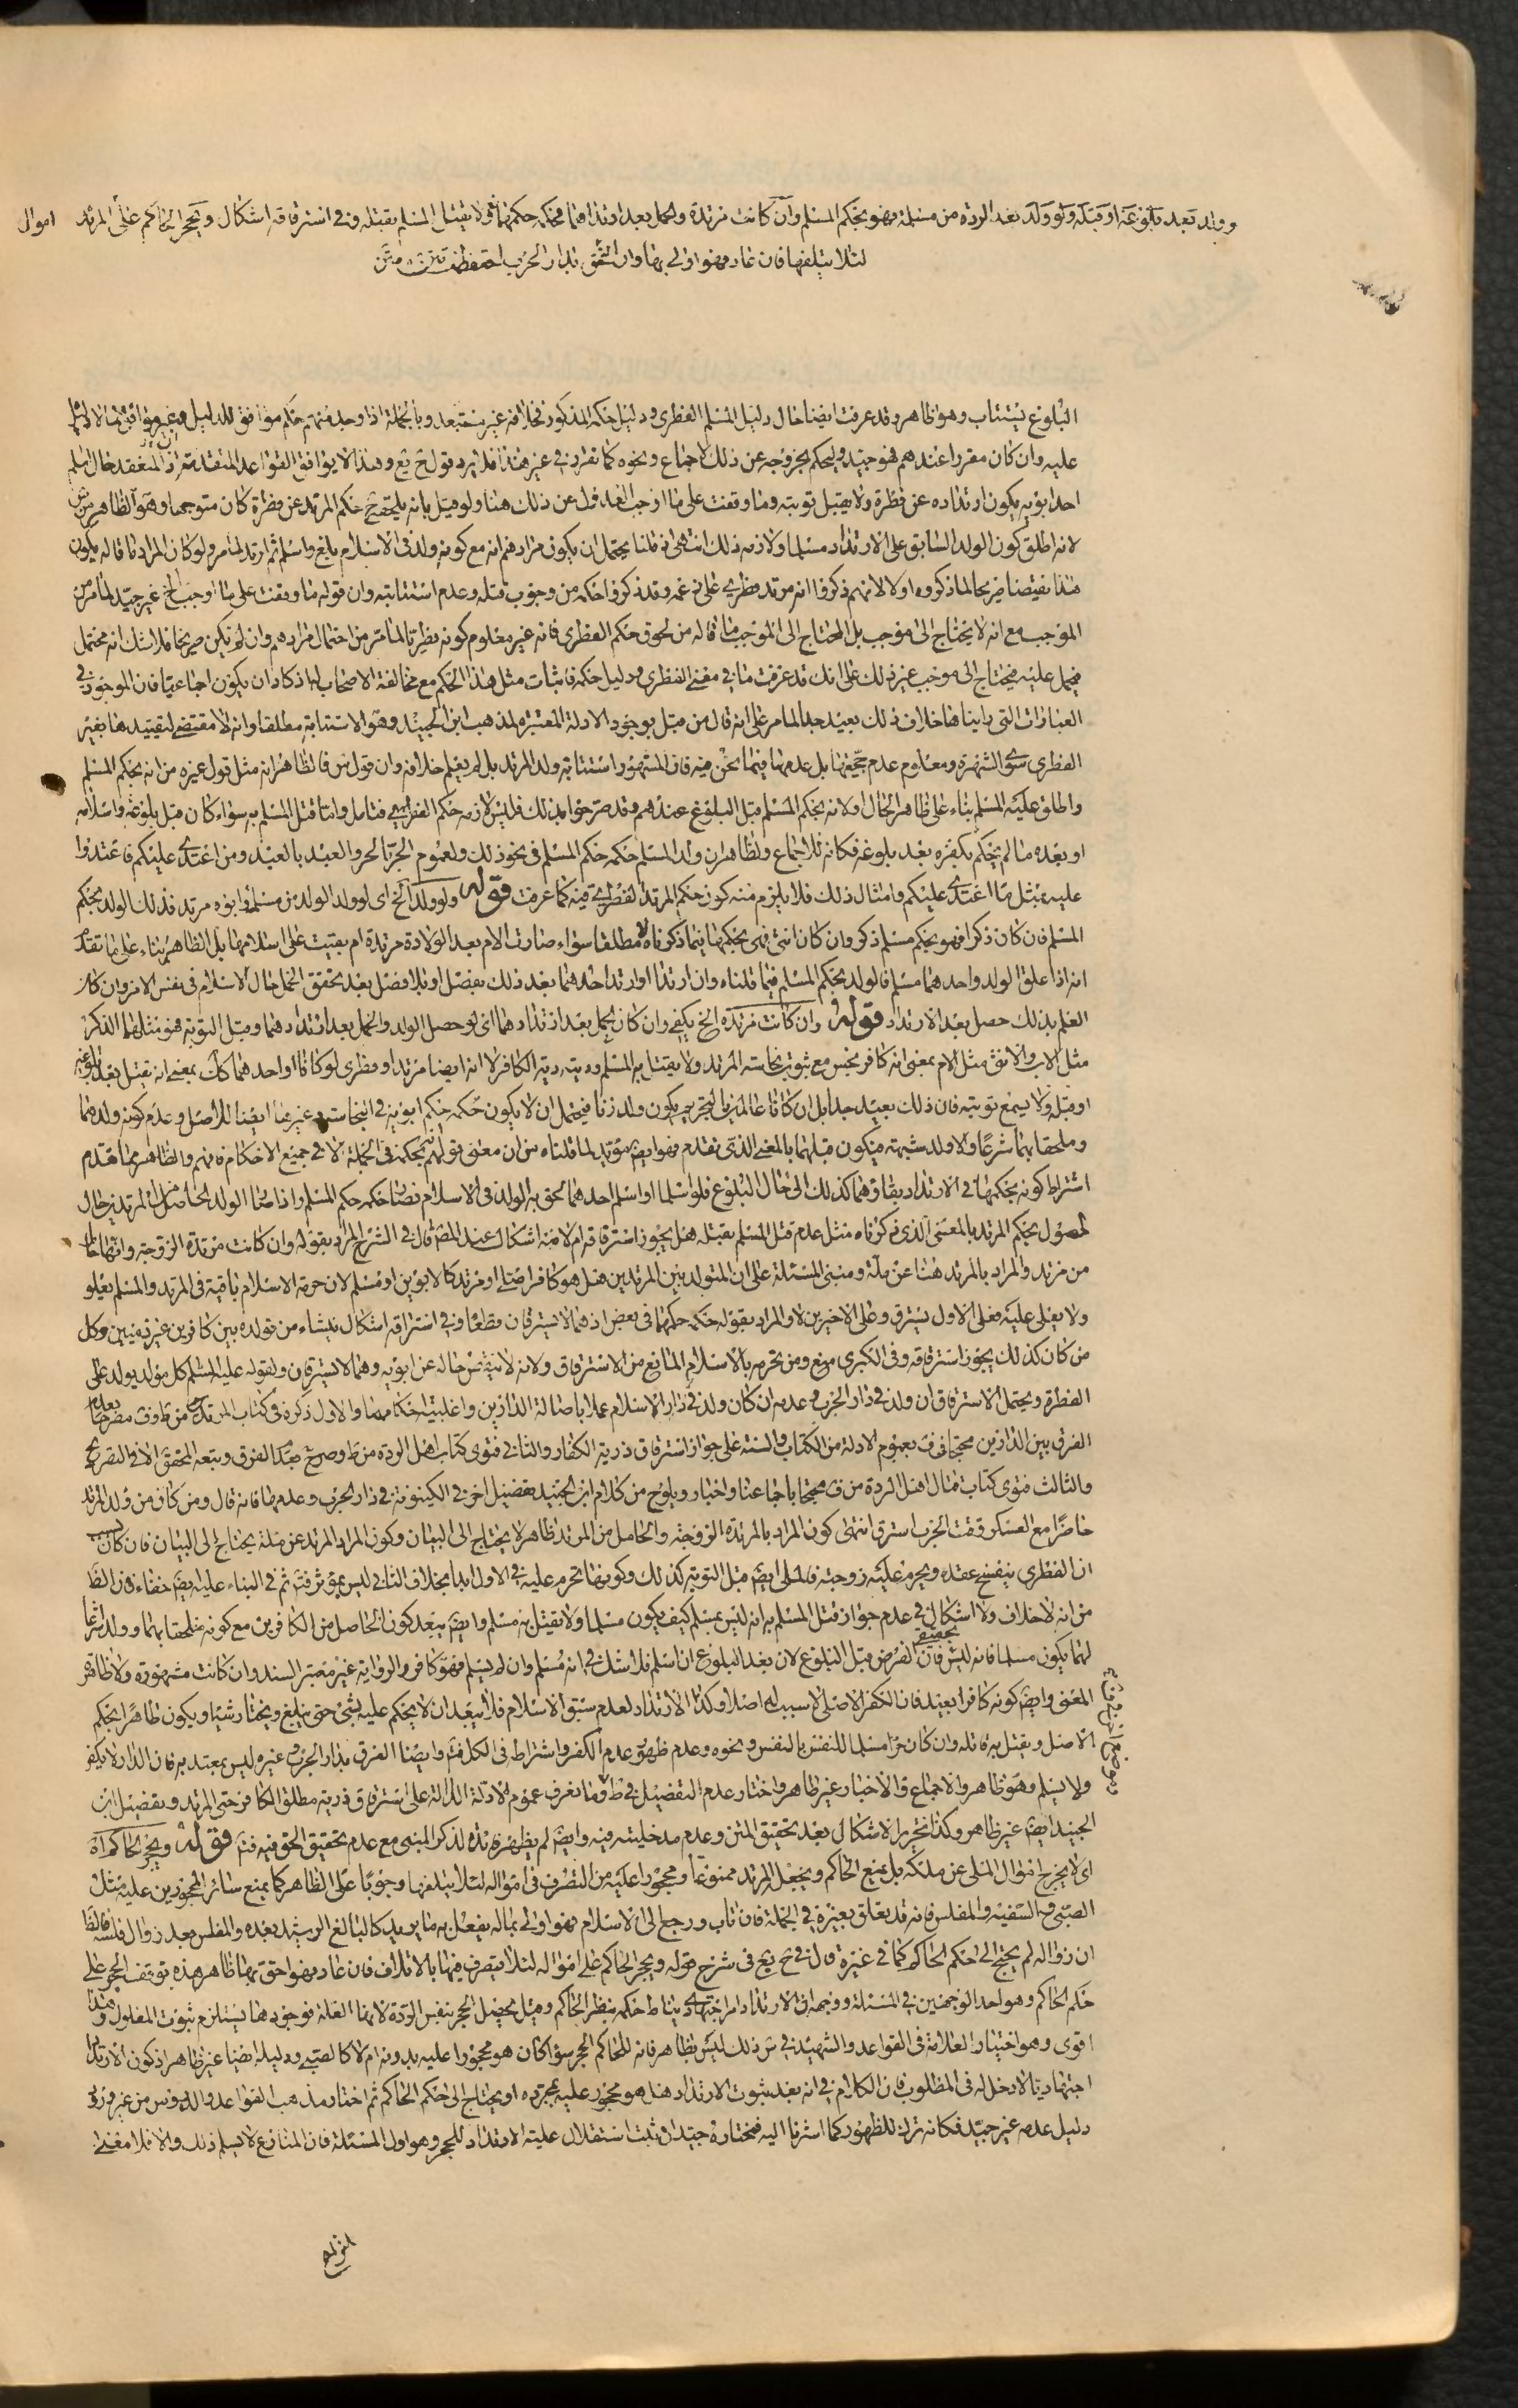 وولد بعد بلوغه او قبله ولو ولد بعد الردة من مسلمة فهو بحكم المسلم وان كانت مرتدة والحمل بعد ارتدادهما فحكمه حكمهما لا يقتل المسلم بقتله وفي استرقاقه اشكال ويحجر الحاكم على المرتد اموال
لئلا يتلفها فان عاد فهو اولى بها وان التحق بدار الحرب احتفظت
البلوغ يستتاب وهو ظاهر وقد عرفت ايضا حال دليل المسلم الفطري ودليل حكمه المذكور فخلافه غير مستبعد وبالجملة اذا وجد منهم حكم موافق للدليل
عليه وان كان مقررا عندهم فهو جيد والحكم بخروجه عن ذلك لاجماع ونحوه كما تقرر في غير هذا فلا يرد قول ح يع وهذا لا يوافق القواعد المتقدمة اذ المنعقد حال اسلم
احد ابويه يكون ارتداده عن فطرة ولا يقبل توبته وما وقفت على ما اوجب العدول عن ذلك هنا ولو قيل بانه يلحقه حكم المرتد عن فطرة كان متوجها وهو الظاهر من س
لانه اطلق كون الولد السابق على الارتداد مسلما ولازمه ذلك انتهى اذ قلنا يحتمل ان يكون مرادهم انه مع كونه ولد في الاسلام بلغ واسلم ثم ارتد لما مر ولو كان المراد ما قاله يكون
هذا نقيضا صريحا لما ذكروه اولا لانهم ذكروا انه مرتد فطري على زعمه وقد ذكروا حكمه من وجوب قتله وعدم استتابته وان قوله ما وقفت على ما اوجب الخ غير جيد لما مر من
الموجب مع انه لا يحتاج الى موجب بل المحتاج الى الموجب ما قاله من لحوق حكم الفطري فانه غير معلوم كونه فطريا لما مر من احتمال مرادهم وان لم يكن صريحا فلا شك انه محتمل
فيحمل عليه فيحتاج الى موجب غير ذلك على انك قد عرفت ما في معنى الفطري ودليل حكمه فاثبات مثل هذا الحكم مع مخالفة الاصحاب لما ذكاد ان يكون اجماعيا فان الموجود في
العبارات التي رايناها خلاف ذلك بعيد جدا لما مر على انه قال من قبل بوجود الادلة المعتبرة لمذهب ابن الجنيد وهو الاستتابة مطلقا وانه لا مقتضى لتقييدها بغير
الفطري سوى الشهرة ومعلوم عدم حجيتها بل عدمها فيما نحن فيه فان المشهور استتابة ولد المرتد بل لم يعلم خلافه وان قول س فالظاهر انه مثل قول غيره من انه بحكم المسلم
واطلق عليه المسلم بناء على ظاهر الحال ولانه بحكم المسلم قبل البلوغ عندهم وقد صرحوا بذلك فليس لازمه حكم الفطري فتامل واما قتل المسلم به سواء كان قبل بلوغه واسلامه
او بعده ما لم يحكم بكفره بعد بلوغه فكانه للاجماع ولظاهر ان ولد المسلم حكمه حكم المسلم في نحو ذلك ولعموم الحر بالحر والعبد بالعبد ومن اعتدى عليكم فاعتدوا
عليه بمثل ما اعتدى عليكم وامثال ذلك فلا يلزم منه كون حكم المرتد الفطري فيه كما عرفت قوله ولو ولد الخ اي لو ولد الولد من مسلمة وابوه مرتد فذلك الولد بحكم
المسلم فان كان ذكرا فهو بحكم مسلم ذكر وان كان انثى فهي بحكمها فيما ذكرناه مطلقا سواء صارت الام بعد الولادة مرتدة ام بقيت على اسلامها بل الظاهر بناء على ما تقدم
انه اذا علق الولد واحدهما مسلم فالولد بحكم المسلم فيما قلناه وان ارتدا او ارتد احدهما بعد ذلك بفصل او بلا فصل بعد تحقق الحمل حال الاسلام في نفس الامر وان كان
العلم بذلك حصل بعد الارتداد قوله وان كانت مرتدة الخ يكفي وان كان الحمل بعد ارتدادهما اي لو حصل الولد والحمل بعد ارتدادهما وقبل التوبة فهو مثلهما الذكر
مثل الاب والانثى مثل الام بمعنى انه كافر نجس مع ثبوت نجاسة المرتد ولا يقتل به المسلم وديته دية الكافر لا انه ايضا مرتد او فطري لو كانا او احدهما كك بمعنى انه يقتل بعد بلوغه
او قبله ولا يسمع توبته فان ذلك بعيد جدا بل ان كانا عالمين بالتحريم يكون ولد زنا فيحتمل ان لا يكون حكمه حكم ابويه في النجاسة وغيرها ايضا للاصل وعدم كونه ولدهما
وملحقا بهما شرعا ولا ولد شبهة فيكون قبلهما بالمعنى الذي تقدم فهو ايضا مؤيد لما قلناه من ان معنى قولهم بحكمه في الجملة لا في جميع الاحكام فافهم والظاهر مما تقدم
اشتراط كونه بحكمهما في الارتداد بقاؤهما كذلك الى حال البلوغ فلو اسلما او اسلم احدهما لحق به الولد في الاسلام فصار حكمه حكم المسلم واذا صار الولد الحاصل من المرتدين حال
لحصول بحكم المرتد بالمعنى الذي ذكرناه مثل عدم قتل المسلم بقتله هل يجوز استرقاقه ام لا فيه اشكال عند المص قال في الشرح المراد بقوله وان كانت مرتدة الزوجة وانها حامل
من مرتد والمراد بالمرتد هنا عن ملة ومبنى المسئلة على ان المتولد بين المرتدين هل هو كافر اصلي او مرتد كالابوين او مسلم لان حرمة الاسلام باقية في المرتد والمسلم يعلو
ولا يعلى عليه فعلى الاول يسترق وعلى الاخيرين لا والمراد بقوله حكمه حكمهما في بعض اذ هما لا يسترقان قطعا وفي استرقاقه اشكال ينشاء من تولده بين كافرين غير ذميين وكل
من كان كذلك يجوز استرقاقه وفي الكبرى منع ومن تحرمه بالاسلام المانع من الاسترقاق ولانه لا ينقص حاله عن ابويه وهما لا يسترقان ولقوله عليه السلم كل مولود يولد على
الفطرة ويحتمل الاسترقاق ان ولد في دار الحرب وعدمه ان كان ولد في دار الاسلام عملا باصالة الدارين واغلبية حكامهما والاول ذكره في كتاب المرتد من ط وف مصرحا بعدم
الفرق بين الدارين محتجا في ف بعموم الادلة من الكتاب والسنة على جواز استرقاق ذرية الكفار والثاني فتوى كتاب اهل الردة من ط وصرح بهذا الفرق وتبعه المحقق الا في التصريح
والثالث فتوى كتاب قتال اهل الردة من ف محتجا باجماعنا واخبار ويلوح من كلام ابن الجنيد تفصيل اخر في الكينونة في دار الحرب وعدمها فانه قال ومن كان من ولد المرتد
حاضرا مع العسكر وقت الحرب استرق انتهى كون المراد بالمرتدة الزوجة والحامل من المرتد ظاهر لا يحتاج الى البيان وكون المراد المرتد عن ملة يحتاج الى البيان فان كان
ان الفطري ينفسخ عقده ويحرم عليه زوجته فالملي ايضا قبل التوبة كذلك وكونها تحرم عليه في الاول ابدا بخلاف الثاني ليس بمؤثر فتم ثم في البناء عليه ايضا خفاء فان الظ
من انه لا خلاف ولا اشكال في عدم جواز قتل المسلم به انه ليس بمسلم كيف يكون مسلما ولا يقتل به مسلم وايضا يبعد كون الحاصل من الكافرين مع كونه ملحقا بهما وولد شرعا
لهما يكون مسلما فانه ليس فان الفرض قبل البلوغ لان بعد البلوغ ان اسلم فلا شك في انه مسلم وان لم يسلم فهو كافر والرواية غير معتبر السند وان كانت مشهورة ولا ظاهر
المعنى وايضا كونه كافرا بعيد فان الكفر الاصلي لا سبب له اصلا وكذا الارتداد لعدم سبق الاسلام فلا يبعد ان لا يحكم عليه بشئ حتى يبلغ ويختار شيئا ويكون ظاهرا بحكم
الاصل ويقتل به قاتله وان كان حرا مسلما للنفس بالنفس ونحوه وعدم ظهور عدم الكفر واشتراط في الكل فتم وايضا الفرق بدار الحرب وغيره ليس بمعتد به فان الدار لا يكفر
ولا يسلم وهو ظاهر والاجماع والاخبار غير ظاهر واختار عدم التفصيل في ط وما تعرف عموم الادلة الدالة على استرقاق ذرية مطلق الكافر حتى المرتد وتفصيل ابن
الجنيد ايضا غير ظاهر وكذا تحرير الاشكال بعد تحقيق المتن وعدم مدخليته فيه وايضا لم يظهر فائدة لذكر المبنى مع عدم تحقيق الحق فيه فتم قوله ويحجر الحاكم اه
اي لا يخرج اموال الملي عن ملكه بل يمنع الحاكم ويجعل المرتد ممنوعا ومحجورا عليه من التصرف في امواله لئلا يتلفها وجوبا على الظاهر كما يمنع سائر المحجورين عليه مثل
الصبي والسفيه والمفلس فانه قد يعلق بغيره في الجملة فان تاب ورجع الى الاسلام فهو اولى بماله يفعل به ما يريد كالبالغ الرشيد بعده والمفلس بعد زوال فلسه فالظ
ان زواله لم يحتج الى حكم الحاكم كما في غيره قال في ح يع في شرح قوله ويحجر الحاكم على امواله لئلا يتصرف فيها بالاتلاف فان عاد فهو احق بها ظاهر هذه توقف الحجر على
حكم الحاكم وهو احد الوجهين في المسئلة ووجهه ان الارتداد امر اجتهادي يناط حكمه بنظر الحاكم وقيل يحصل الحجر بنفس الردة لانها العلة فوجودها يستلزم ثبوت المعلول وهذا
اقوى وهو اختيار العلامة في القواعد والشهيد في س ذلك ليس بظاهر فانه للحاكم الحجر سواء كان هو محجورا عليه بدونه ام لا كالصبي ودليله ايضا غير ظاهر اذ كون الارتداد
اجتهاديا لا دخل له في المطلوب فان الكلام في انه بعد ثبوت الارتداد هل هو محجور عليه بمجرده او يحتاج الى حكم الحاكم ثم اختار مذهب القواعد والدروس من غير رد
دليل عدمه غير جيد فكانه ترك للظهور كما اشرنا اليه فمختاره جيد ان ثبت استقلال علية الارتداد للحجر وهو اول المسئلة فان المنازع لا يسلم ذلك والا فلا معنى